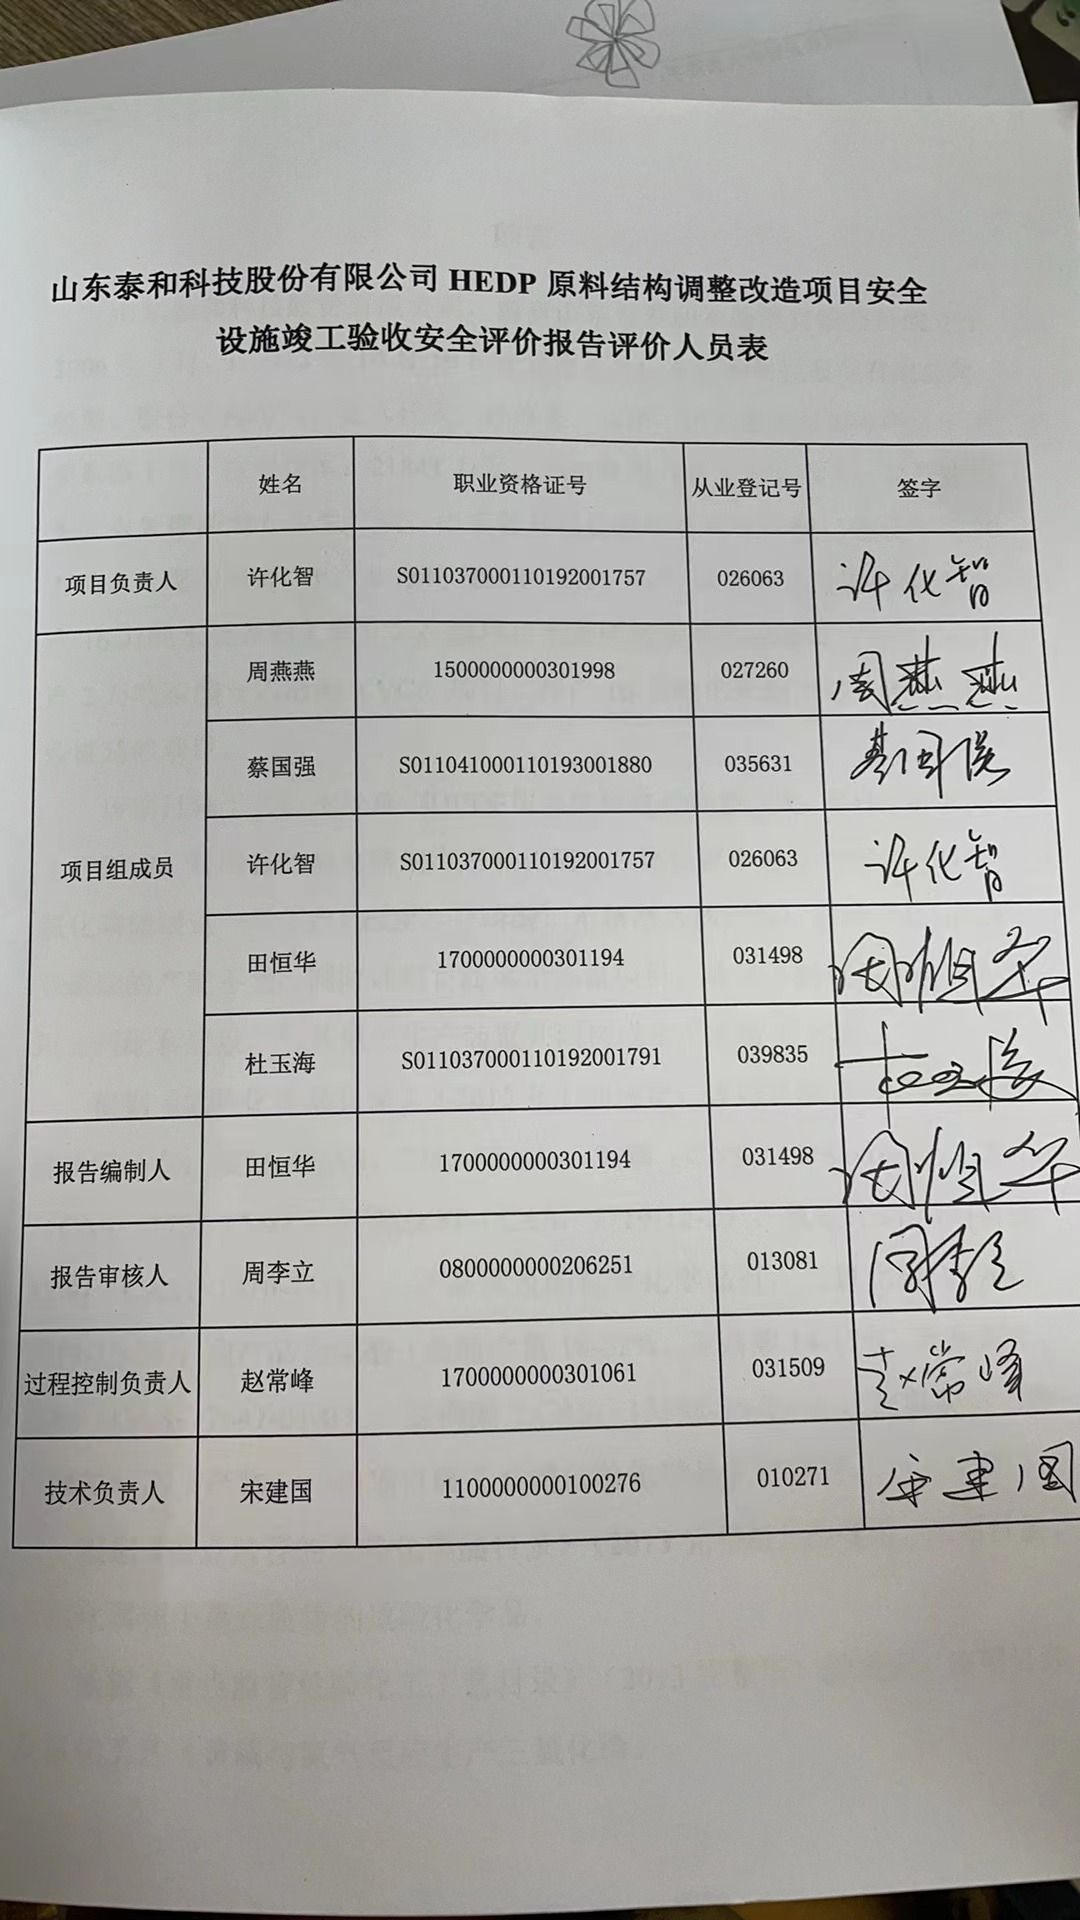 山东泰和科技股份有限公司 HEDP 原料结构调整改造项目安全
设施竣工验收安全评价报告评价人员表
姓名 职业资格证号 从业登记号 签字
项目负责人 许化智 S011037000110192001757 026063 许化智
周燕燕 1500000000301998 027260 周燕燕
蔡国强 S011041000110193001880 035631 蔡国强
项目组成员 许化智 S011037000110192001757 026063 许化智
田恒华 1700000000301194 031498 田恒华
杜玉海 S011037000110192001791 039835 杜玉海
报告编制人 田恒华 1700000000301194 031498 田恒华
报告审核人 周李立 0800000000206251 013081 周李立
过程控制负责人 赵常峰 1700000000301061 031509 赵常峰
技术负责人 宋建国 1100000000100276 010271 宋建国